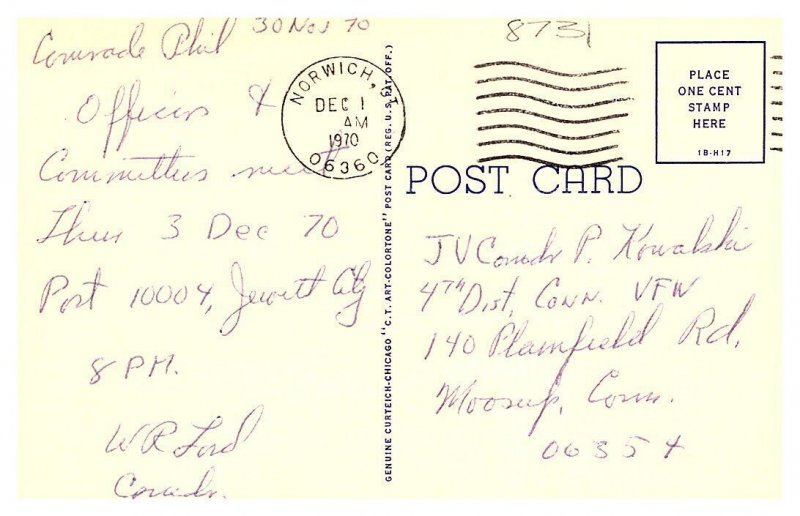 Comrade Phil 30 Nov 70
Officers &
Committees meet
Thur 3 Dec 70
Post 10004, Jewett City
8 PM.
W R Ford
Comdr.
NORWICH, CT
DEC 1
AM
1970
06360
GENUINE CURTEICH-CHICAGO "C.T. ART-COLORTONE" POST CARD (REG. U.S. PAT. OFF.)
8731
PLACE
ONE CENT
STAMP
HERE
1B-H17
POST CARD
JV Comdr P. Kowalski
4th Dist, Conn. VFW
140 Plainfield Rd,
Moosup, Conn.
06354